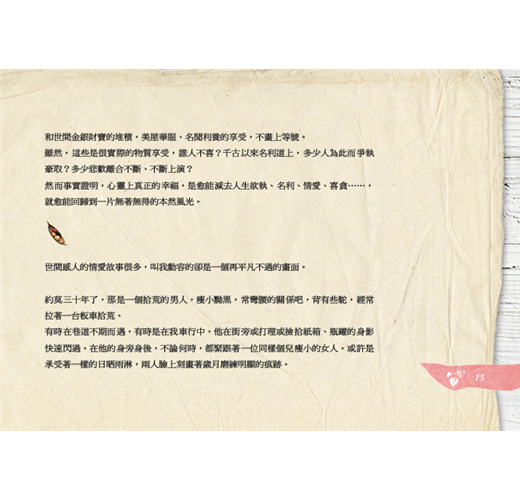 和世間金銀財寶的堆積，美屋華服、名聞利養的享受，不畫上等號。
雖然，這些是很實際的物質享受，誰人不喜？千古以來名利道上，多少人為此而爭執
豪取？多少悲歡離合不斷、不斷上演？
然而事實證明，心靈上真正的幸福，是愈能減去人生欲執、名利、情愛、喜貪……，
就愈能回歸到一片無著無得的本然風光。
世間感人的情愛故事很多，叫我動容的卻是一個再平凡不過的畫面。
約莫三十年了，那是一個拾荒的男人，瘦小黝黑，常彎腰的關係吧，背有些駝，經常
拉著一台板車拾荒。
有時在巷道不期而遇，有時是在我車行中，他在街旁或打理或撿拾紙箱、瓶罐的身影
快速閃過。在他的身旁身後，不論何時，都緊跟著一位同樣個兒瘦小的女人。或許是
承受著一樣的日晒雨淋，兩人臉上刻畫著歲月磨練明顯的痕跡。
15